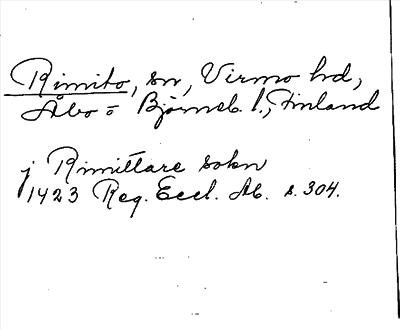 Rimito, sn, Virmo hd,
Åbo o Björneb. l., Finland
j Rimittare sokn
1423 Reg. Eccl. Ab. s. 304.